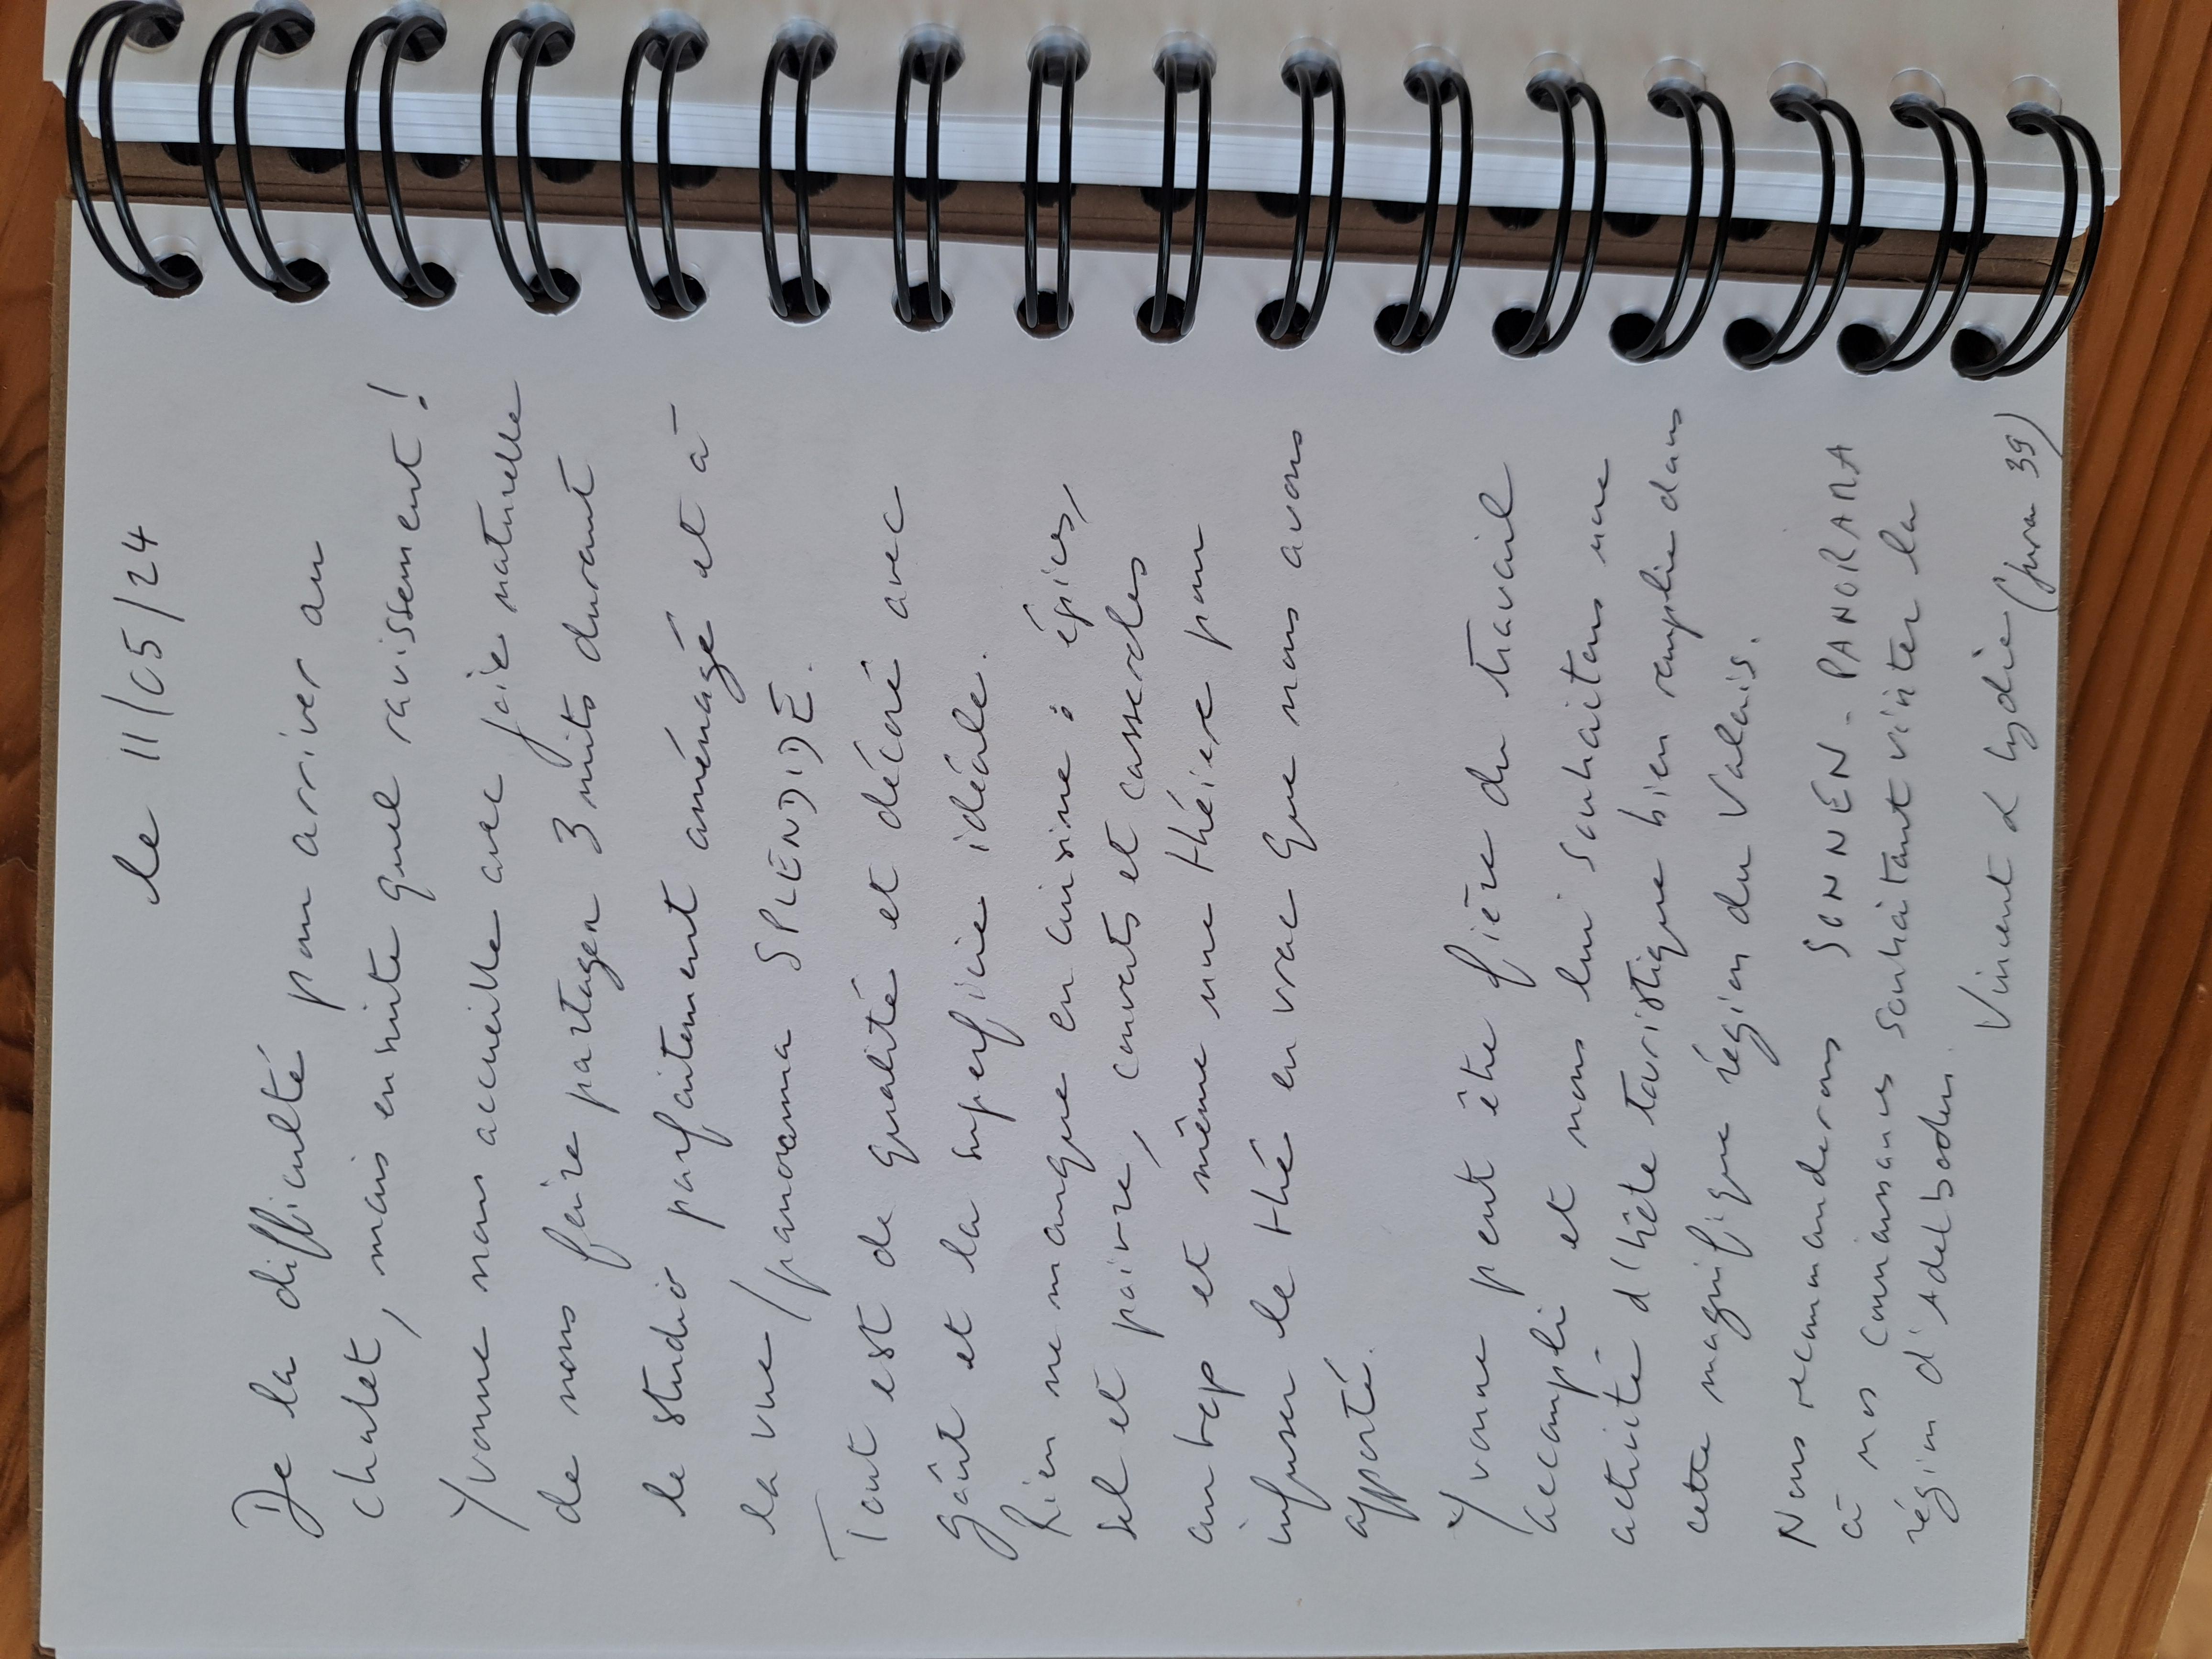 le 11/05/24
De la difficulté pour arriver au
chalet, mais ensuite quel ravissement !
Yvonne nous accueille avec joie naturelle
de nous faire partager 3 nuits durant
le studio parfaitement aménagé et à
la vue / panorama SPLENDIDE.
Tout est de qualité et décoré avec
goût et la superficie idéale.
Rien ne manque en cuisine : épices,
sel et poivre, couverts et casseroles
au top et même une théière pour
infuser le thé en vrac que nous avons
apporté.
Yvonne peut être fière du travail
accompli et nous lui souhaitons une
activité d'hôte touristique bien remplie dans
cette magnifique région du Valais.
Nous recommanderons SONNEN-PANORAMA
à nos connaissances souhaitant visiter la
région d'Adelboden.
Vincent & Lydie (Jura 39)